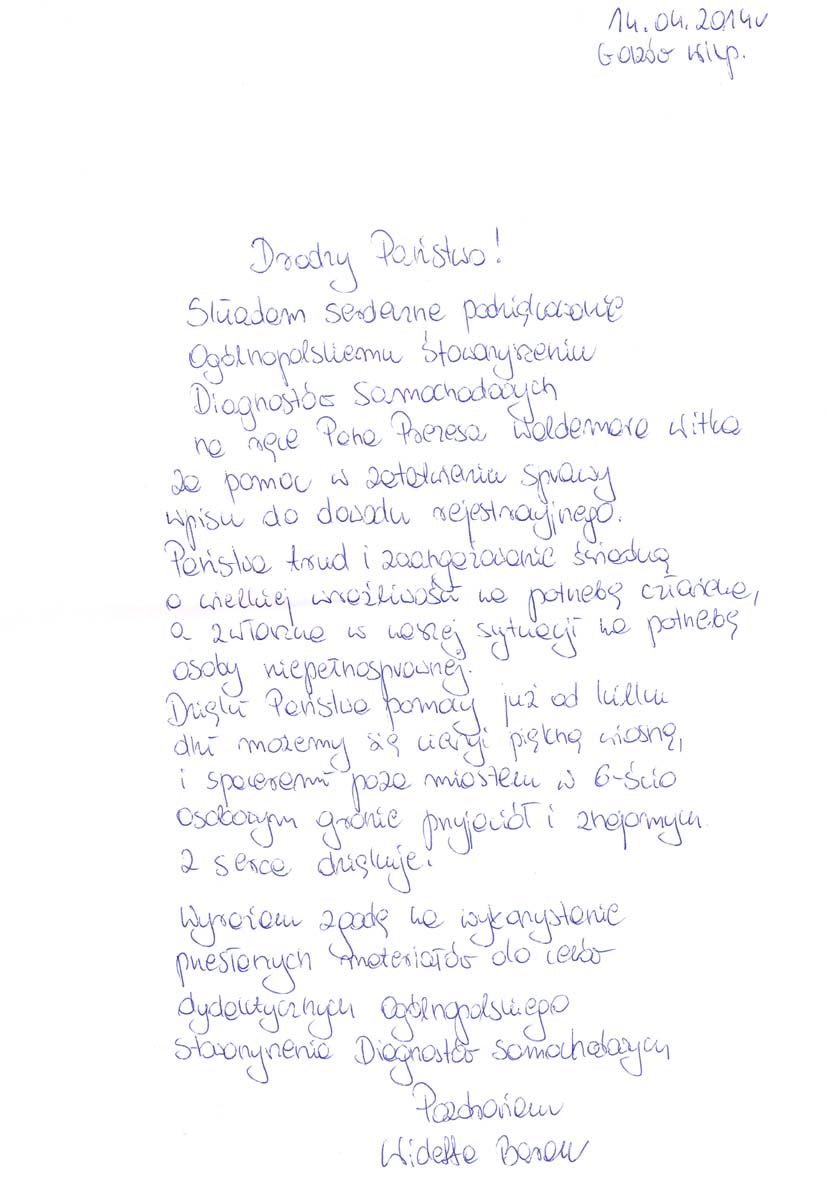 14.04.2014r
Gorzów Wlkp.
Drodzy Państwo!
Składam serdeczne podziękowanie
Ogólnopolskiemu Stowarzyszeniu
Diagnostów Samochodowych
na ręce Pana Prezesa Waldemara Witka
za pomoc w załatwieniu sprawy
wpisu do dowodu rejestracyjnego.
Państwa trud i zaangażowanie świadczą
o wielkiej wrażliwości na potrzebę człowieka,
a zwłaszcza w naszej sytuacji na potrzebę
osoby niepełnosprawnej.
Dzięki Państwa pomocy już od kilku
dni możemy się cieszyć piękną wiosną,
i spacerami poza miastem w 6-ścio
osobowym gronie przyjaciół i znajomych.
Z serca dziękuję.
Wyrażam zgodę na wykorzystanie
przesłanych materiałów do celów
dydaktycznych Ogólnopolskiego
Stowarzyszenia Diagnostów Samochodowych
Pozdrawiam
Baran